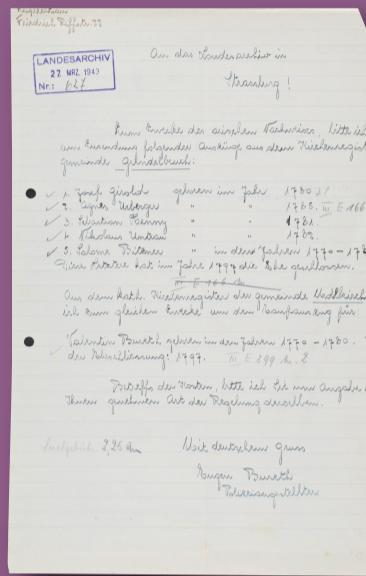 Friedrich Ruffstr. 33
LANDESARCHIV
27 MRZ. 1943
Nr.: 627
An das Landesarchiv in
Strassburg !
Zum Zwecke des arischen Nachweises, bitte ich
um Zusendung folgender Auszüge aus dem Kirchenregist
gemeinde Grendelbruch :
1. Josef Girold geboren im Jahr 1780
2. Agnes " " 1783. III E 166
3. Sebastian " " 1781.
4. Nikolaus " " 1782.
5. Salome " in den Jahren 1770 - 178
Diese Letztere hat im Jahre 1797 die Ehe geschlossen.
III E 166
Aus dem kath. Kirchenregister der Gemeinde
ich zum gleichen Zwecke um den Taufauszug für:
Valentin Bureth geboren in den Jahren 1770 - 1780.
der Eheschliessung: 1797. III E 299 2
Betreffs der Kosten, bitte ich Sie um Angabe
Ihnen genehmen Art der Regelung derselben.
2,25 Rm
Mit deutschem Gruss
Eugen Bureth
Polizeiangestellter